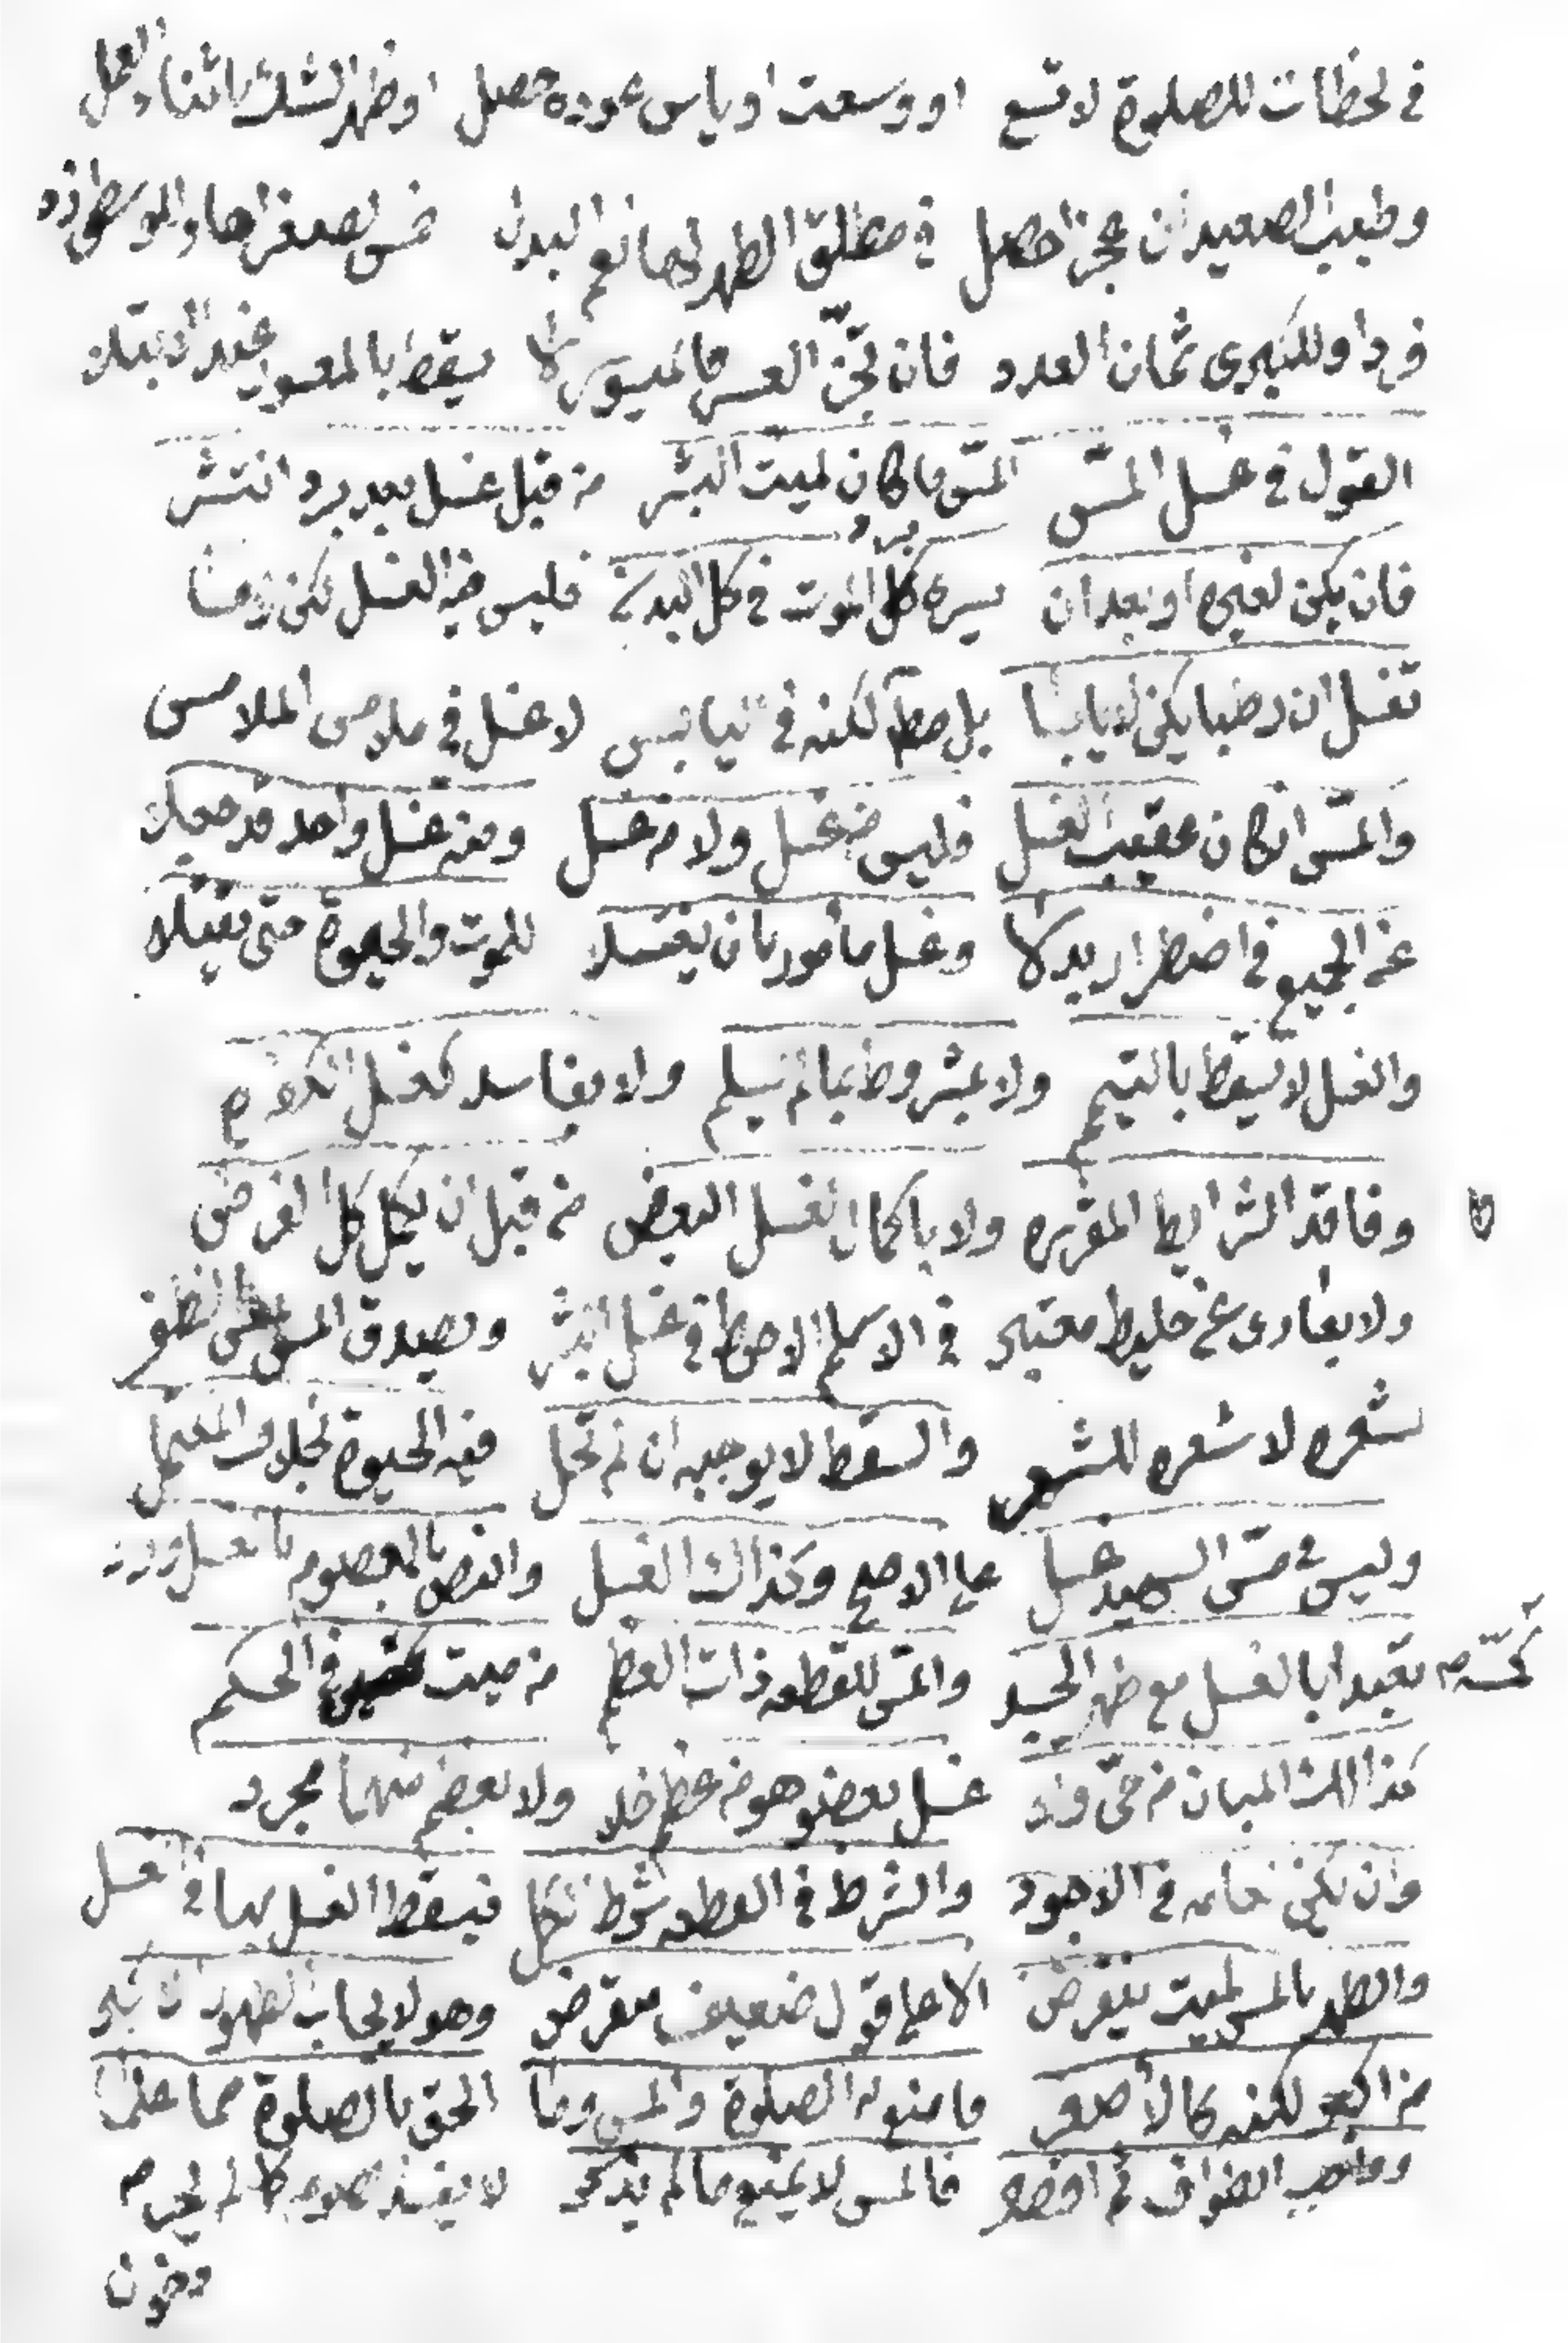 في لحظات للصلوة لا تسع او وسعت او ياس عوده حصل او ظهر الشك باثناء العمل
وطيب الصعيد ان عجز حصل في مطلق الطهر لها نعم البدل خمس لصغراها وللوسطى زد
فردا وللكبرى ثمان العدد فان تحن العسر فالميسور لا يسقط بالمعسور عند الابتلا
القول في غسل المس المس ما كان لميت البشر من قبل غسل بعد برد انتشر
فان يكن لغيره او بعد ان يسره كل الموت في كل البدن فليس فيه الغسل لكن لزما
تغسل ان رطبا يكن لا يابسا بل مطلقا لكنه في يابس لا غسل في ملامس الملامس
والمس ان كان عقيب الغسل فليس من غسل ولا من غسل ومنه غسل واحد قد جعلا
عن الجميع في اضطرار بدلا وغسل مأمور بان يغتسلا للموت والحيوة حتى يقتلا
والغسل لا يسقط بالتيمم ولا بمشروط بما لم يسلم ولا بفاسد كغسل الكفره
وفاقد الشرايط المقرره ولا باكمال لغسل البعض من قبل ان يكمل كل الفرض
ولا بعارى عن خليط معتبر في الاسلم الاحوط في غسل البشر ويصدق المس على الظفر
بشعره لا شعره للشعر والسقط لا يوجبه ان لم تحل فيه الحيوة بخلاف المكتمل
وليس في مس الشهيد غسل على الاصح وكذاك الغسل والنص بالمعصوم بالغسل ورد
لكنه تعبدا بالغسل مع طهر الجسد والمس للقطعه ذات العظم من ميت كمسه في الحكم
كذا المبان من حى وزد غسل بعضو هو من عظم خلا ولا بعظم منهما مجرد
وان يكن في الاجود والشرط في القطعه شرط الكل فيسقط الغسل بها في الغسل
والطهر بالمس لميت ينقرض الا على قول ضعيف معترض وهو لا يجاب الطهور
من اكبر لكنه كالأصغر مامنع الصلوة والمس وما الحق بالصلوة مما علما
وواجب الطواف ثم فالمس لا يمنع ما لم يذكر لا يفسد صومه كما لم يحرم